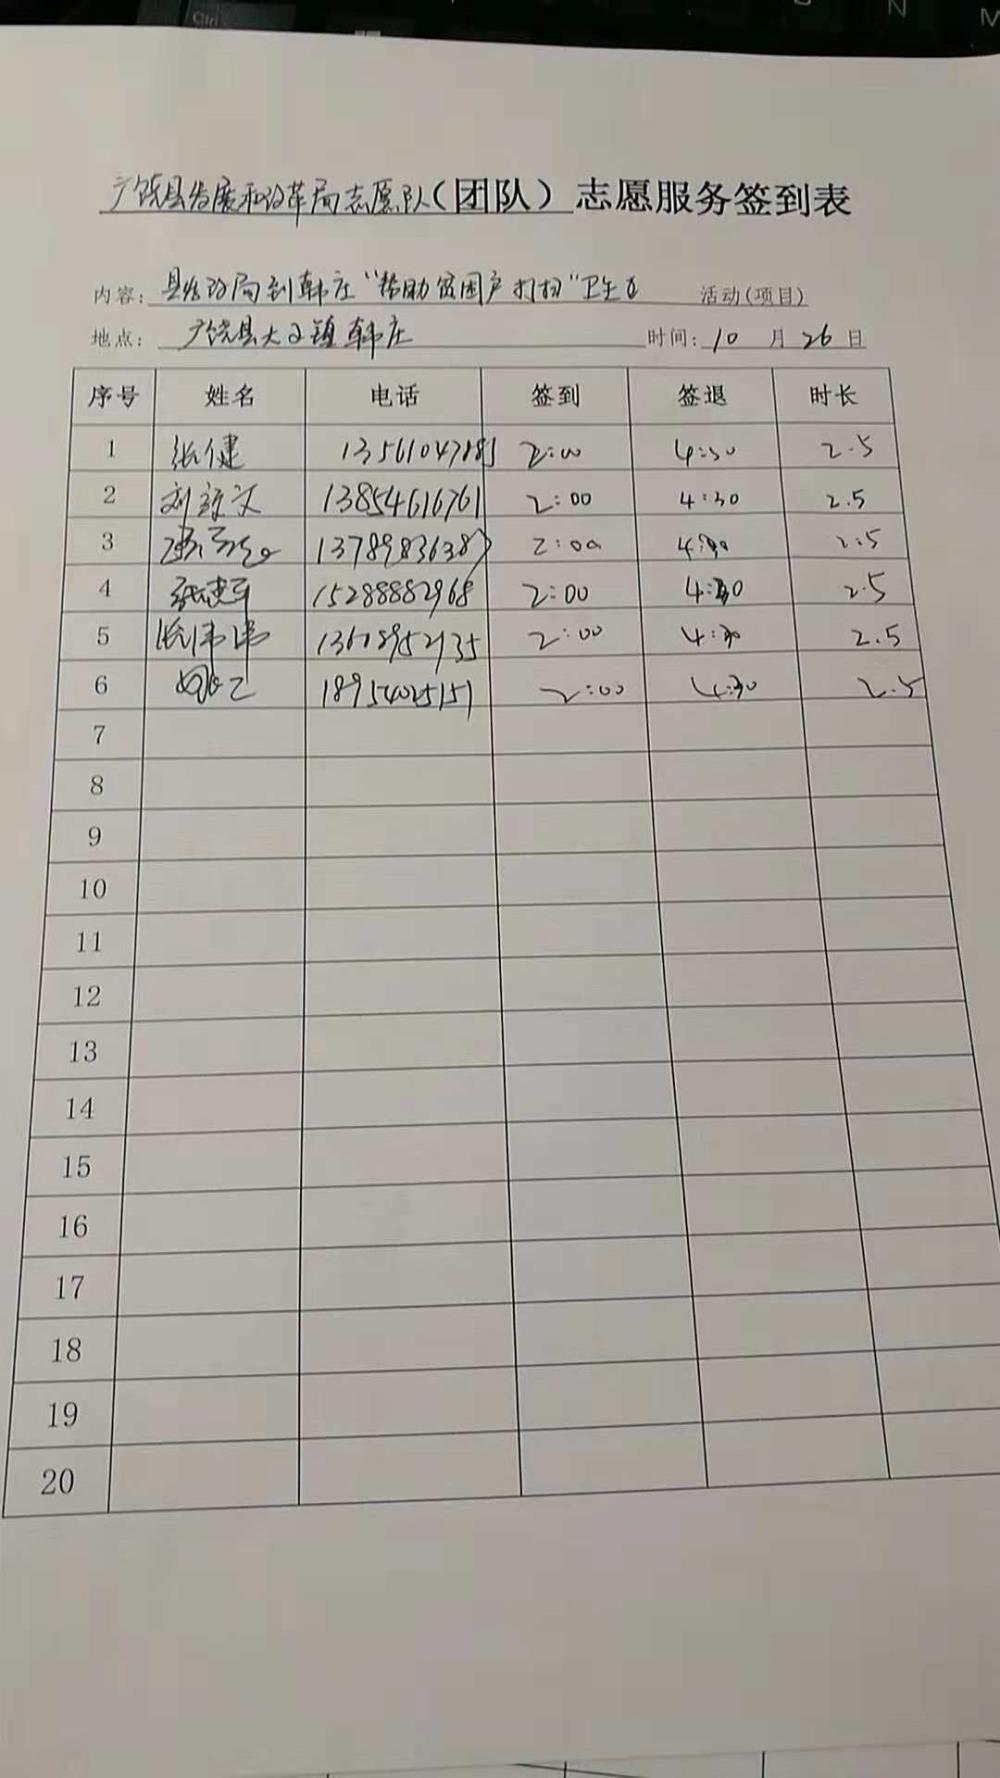 Ctrl
N
M
广饶县发展和改革局志愿队(团队)志愿服务签到表
内容: 县发改局到韩庄“帮助贫困户打扫”卫生 活动(项目)
地点: 广饶县大王镇韩庄 时间: 10 月 26 日
序号 姓名 电话 签到 签退 时长
1 张健 2:00 4:30 2.5
2 13854616761 2:00 4:30 2.5
3 13789836387 2:00 2.5
4 张建军 15288882968 2:00 4:30 2.5
5 张伟伟 13618952135 2:00 4:30 2.5
6 18954025151 2:00 4:30 2.5
7
8
9
10
11
12
13
14
15
16
17
18
19
20